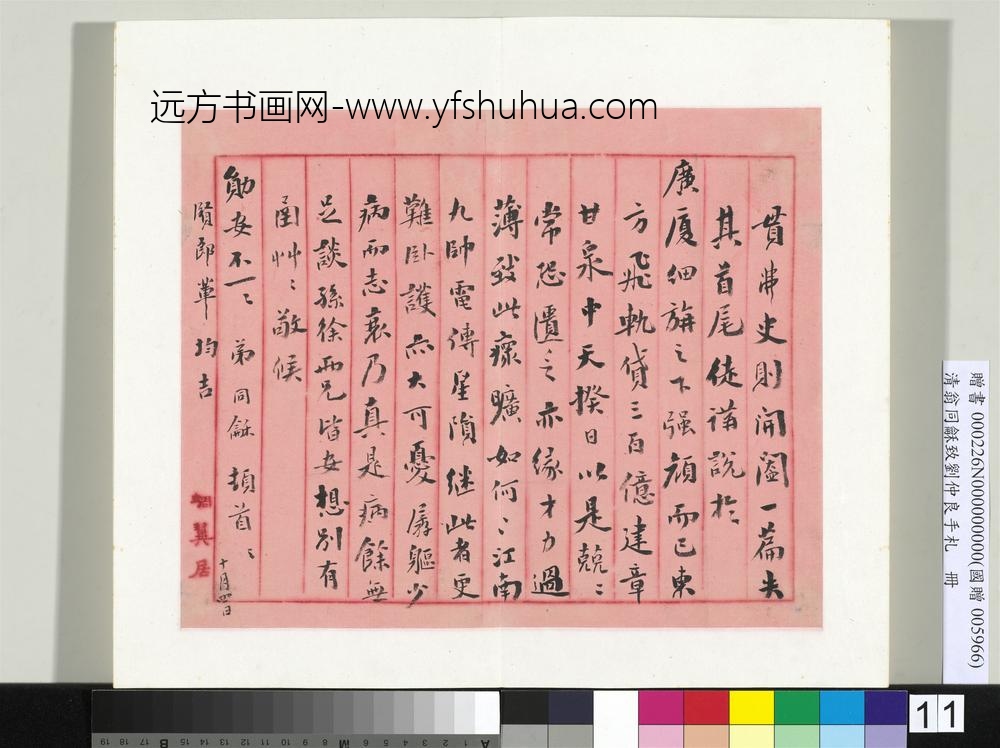 远方书画网-www.yfshuhua.com
貫弗史則開闔一篇失
其首尾徒講說於
廣廈細旃之下强顏而已東
方飛軌貸三百億建章
甘泉中天揆日以是兢〻
常恐匱乏亦緣才力過
薄致此瘝曠如何〻江南
九帥電傳星隕继此者更
難卧護亦大可憂孱軀少
病而志衰乃真是病餘無
足談孫徐兩兄皆安想别有
圅艸〻敬候
勛安不一〻 弟同龢頓首〻 十月四日
賢郎輩均吉
居
贈書 000226N000000000(國贈 005966)
清翁同龢致劉仲良手札 冊
11